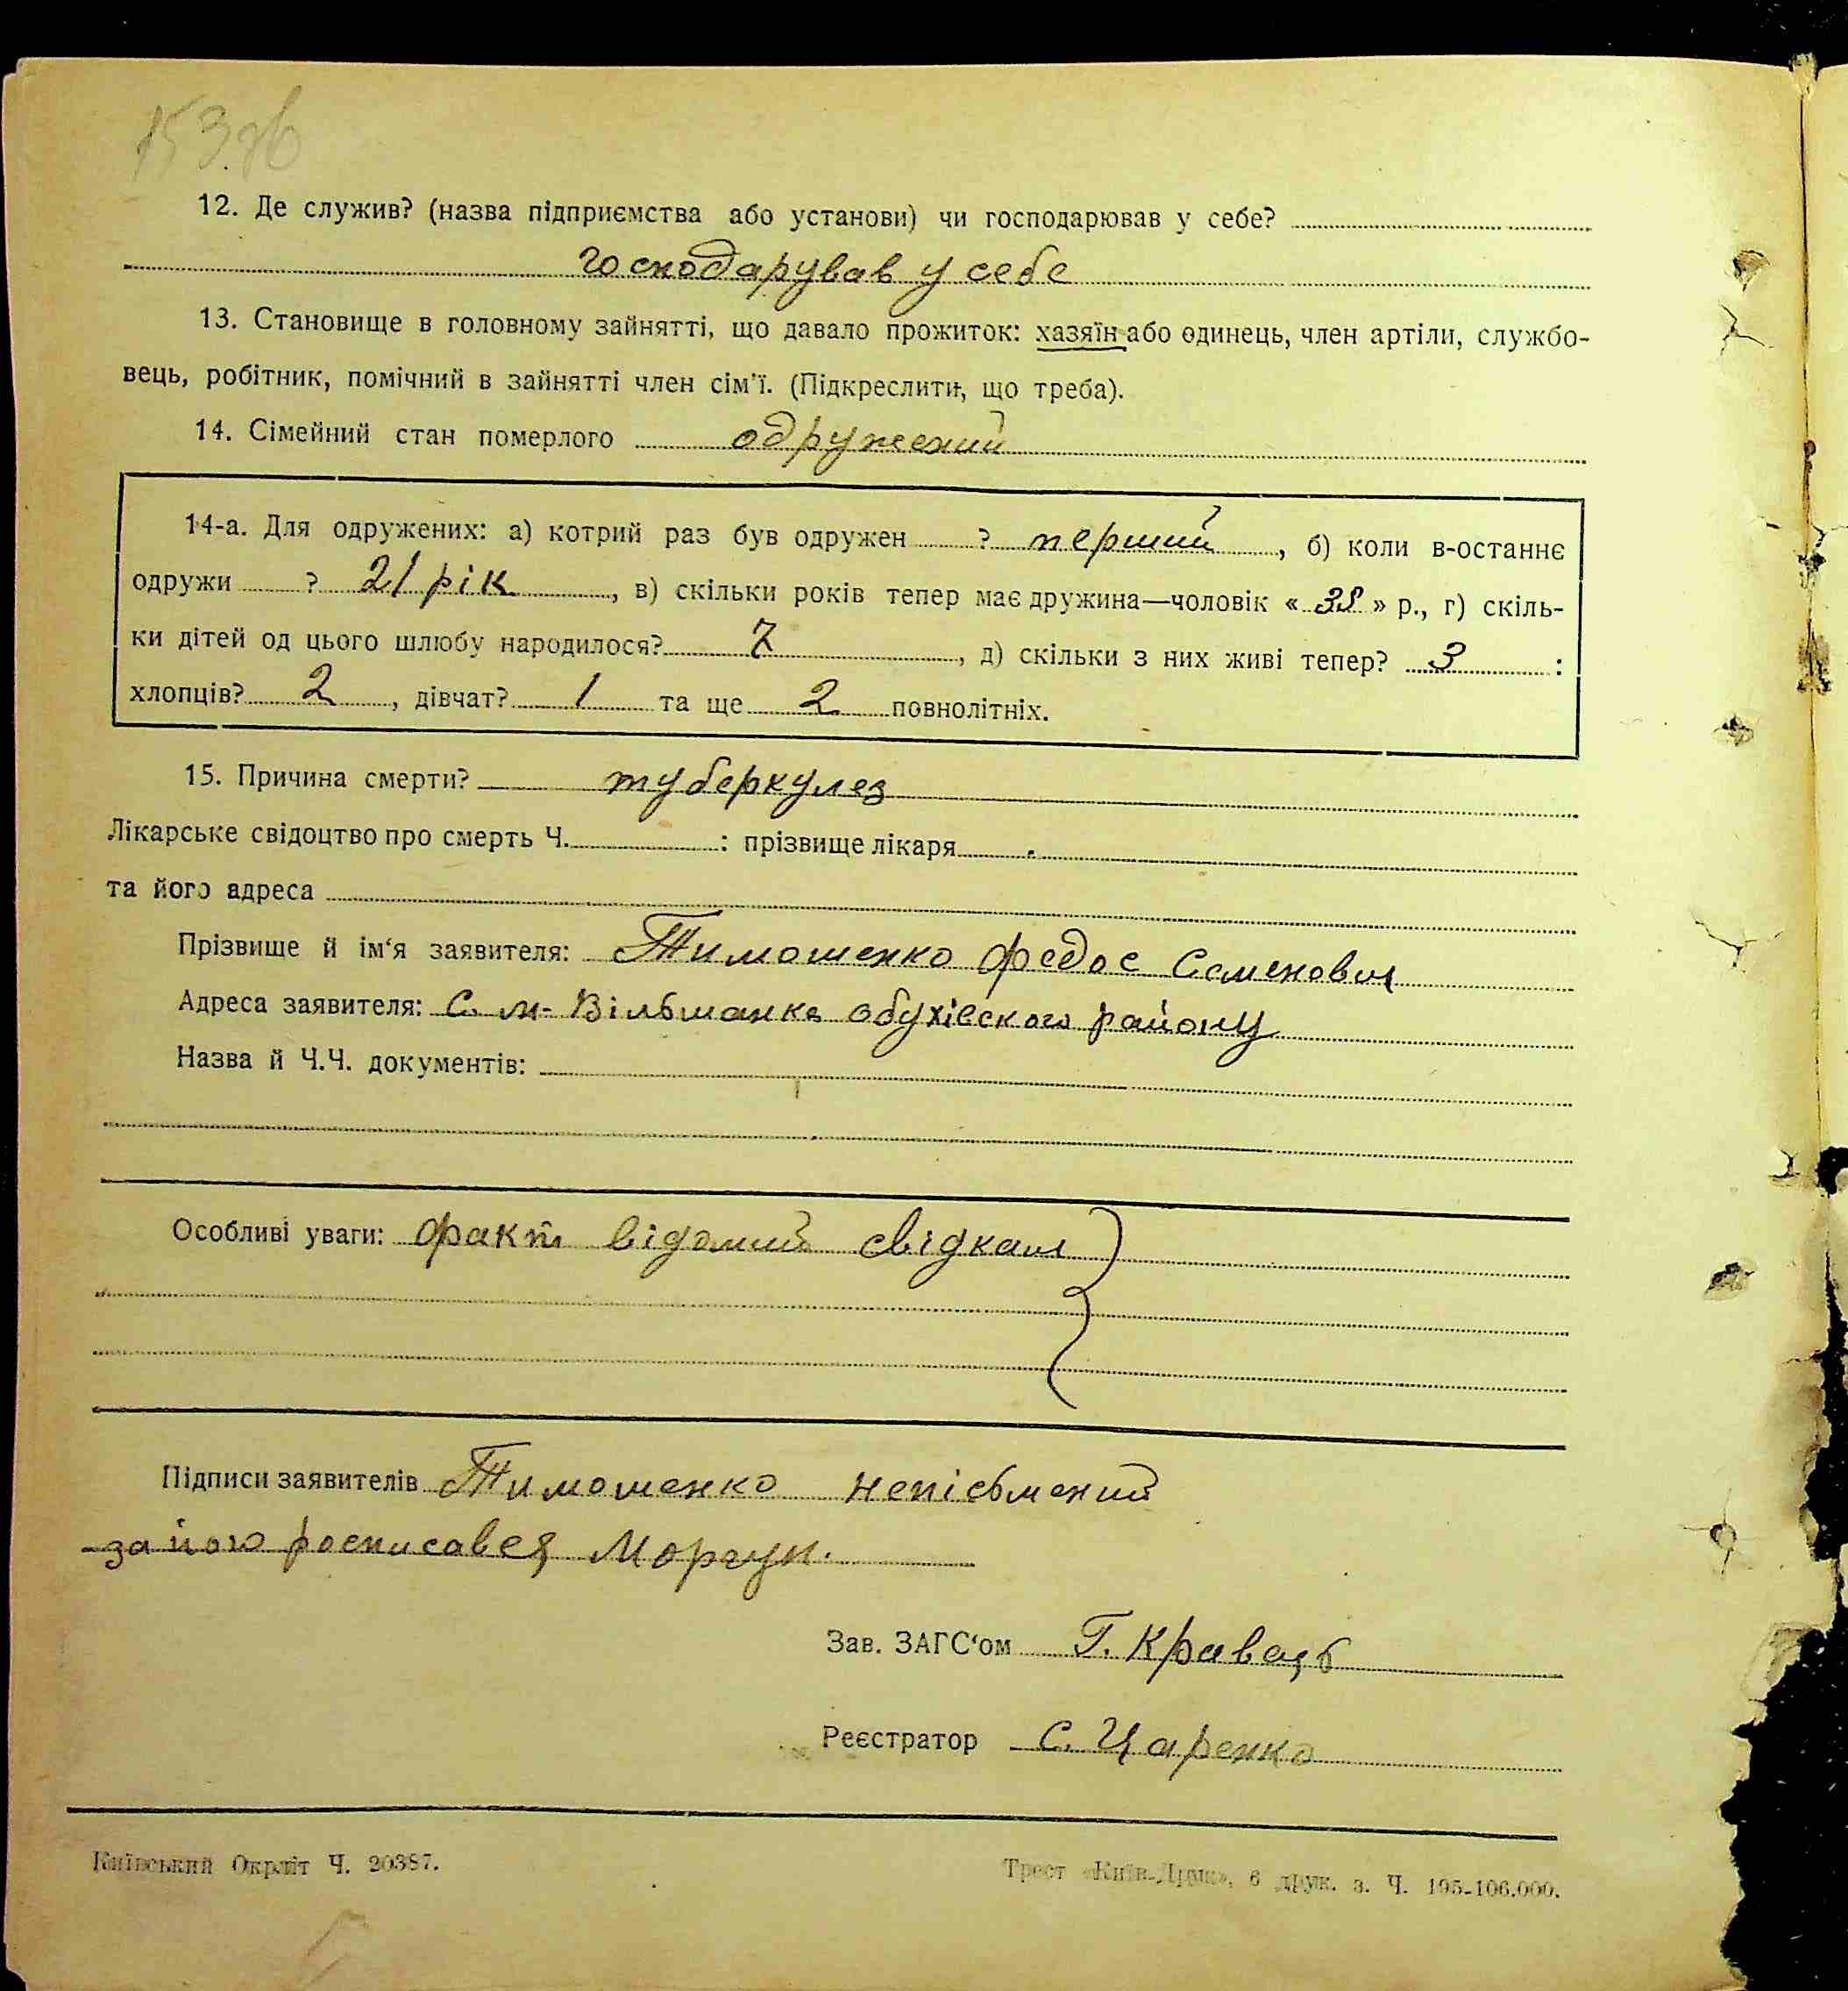 153 зв
12. Де служив? (назва підприємства або установи) чи господарював у себе?
господарував у себе
13. Становище в головному зайнятті, що давало прожиток: хазяїн або одинець, член артіли, службо-
вець, робітник, помічний в зайнятті член сім'ї. (Підкреслити, що треба).
14. Сімейний стан померлого одружений
14-а. Для одружених: а) котрий раз був одружен ? перший, б) коли в-останнє
одружи ? 21 рік, в) скільки років тепер має дружина—чоловік « 38 » р., г) скіль-
ки дітей од цього шлюбу народилося? 7, д) скільки з них живі тепер? 3 :
хлопців? 2, дівчат? 1 та ще 2 повнолітніх.
15. Причина смерти? туберкулез
Лікарське свідоцтво про смерть Ч. : прізвище лікаря
та його адреса
Прізвище й ім'я заявителя: Тимошенко Федос Семенович
Адреса заявителя: С. м-Вільшанка обухівского району
Назва й Ч.Ч. документів:
Особливі уваги: факт відомий свідкам
Підписи заявителів Тимошенко непісьмений
за його росписався Моргун.
Зав. ЗАГС'ом Г. Кравець
Реєстратор С. Царенко
Київський Окрліт Ч. 20387.
Трест «Київ-Друк», 6 друк. з. Ч. 195-106.000.